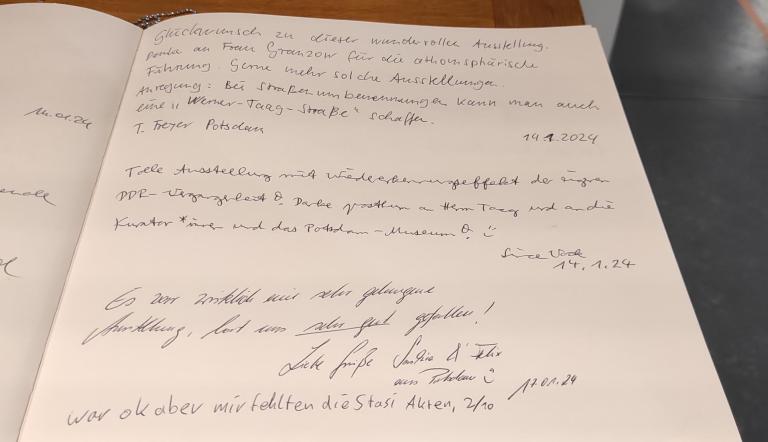 14.01.24
Glückwunsch zu dieser wundervollen Ausstellung.
Danke an Frau Granzow für die athomsphärische
Führung. Gerne mehr solche Ausstellungen.
Anregung: Bei Straßenumbenennungen kann man auch
eine "Werner-Taag-Straße" schaffen.
T. Freyer Potsdam
14.1.2024
Tolle Ausstellung mit Wiedererkennungseffekt der eignen
DDR-Vergangenheit. Danke posthum an Herrn Taag und an die
Kurator*innen und das Potsdam-Museum
14.1.24
Es war wirklich eine sehr gelungene
Ausstellung, hat uns sehr gut gefallen!
Liebe Grüße Sandra & Felix
aus Potsdam
17.01.24
war ok aber mir fehlten die Stasi Akten, 2/10